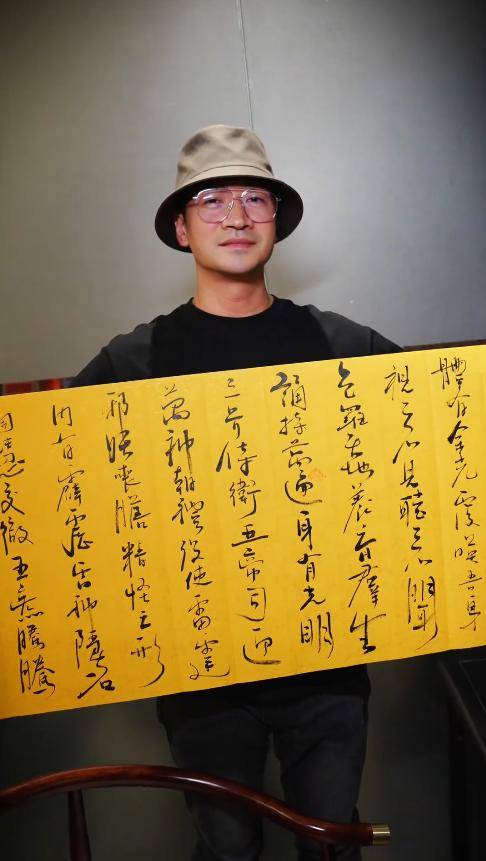 體有金光覆映吾身
視之不見聽之不聞
包羅天地養育群生
誦持萬遍身有光明
三界侍衛五帝司迎
萬神朝禮役使雷霆
妖喪膽精怪亡形
內有霹靂雷神隱名
洞慧交徹五炁騰騰